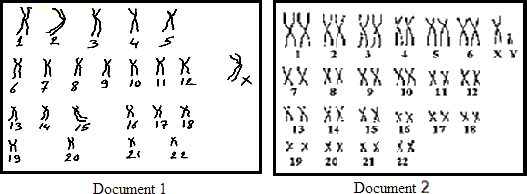 1 2 3 4 5
6 7 8 9 10 11 12 X
13 14 15 16 17 18
19 20 21 22
Document 1
1 2 3 4 5 6 X Y
7 8 9 10 11 12
13 14 15 16 17 18
19 20 21 22
Document 2